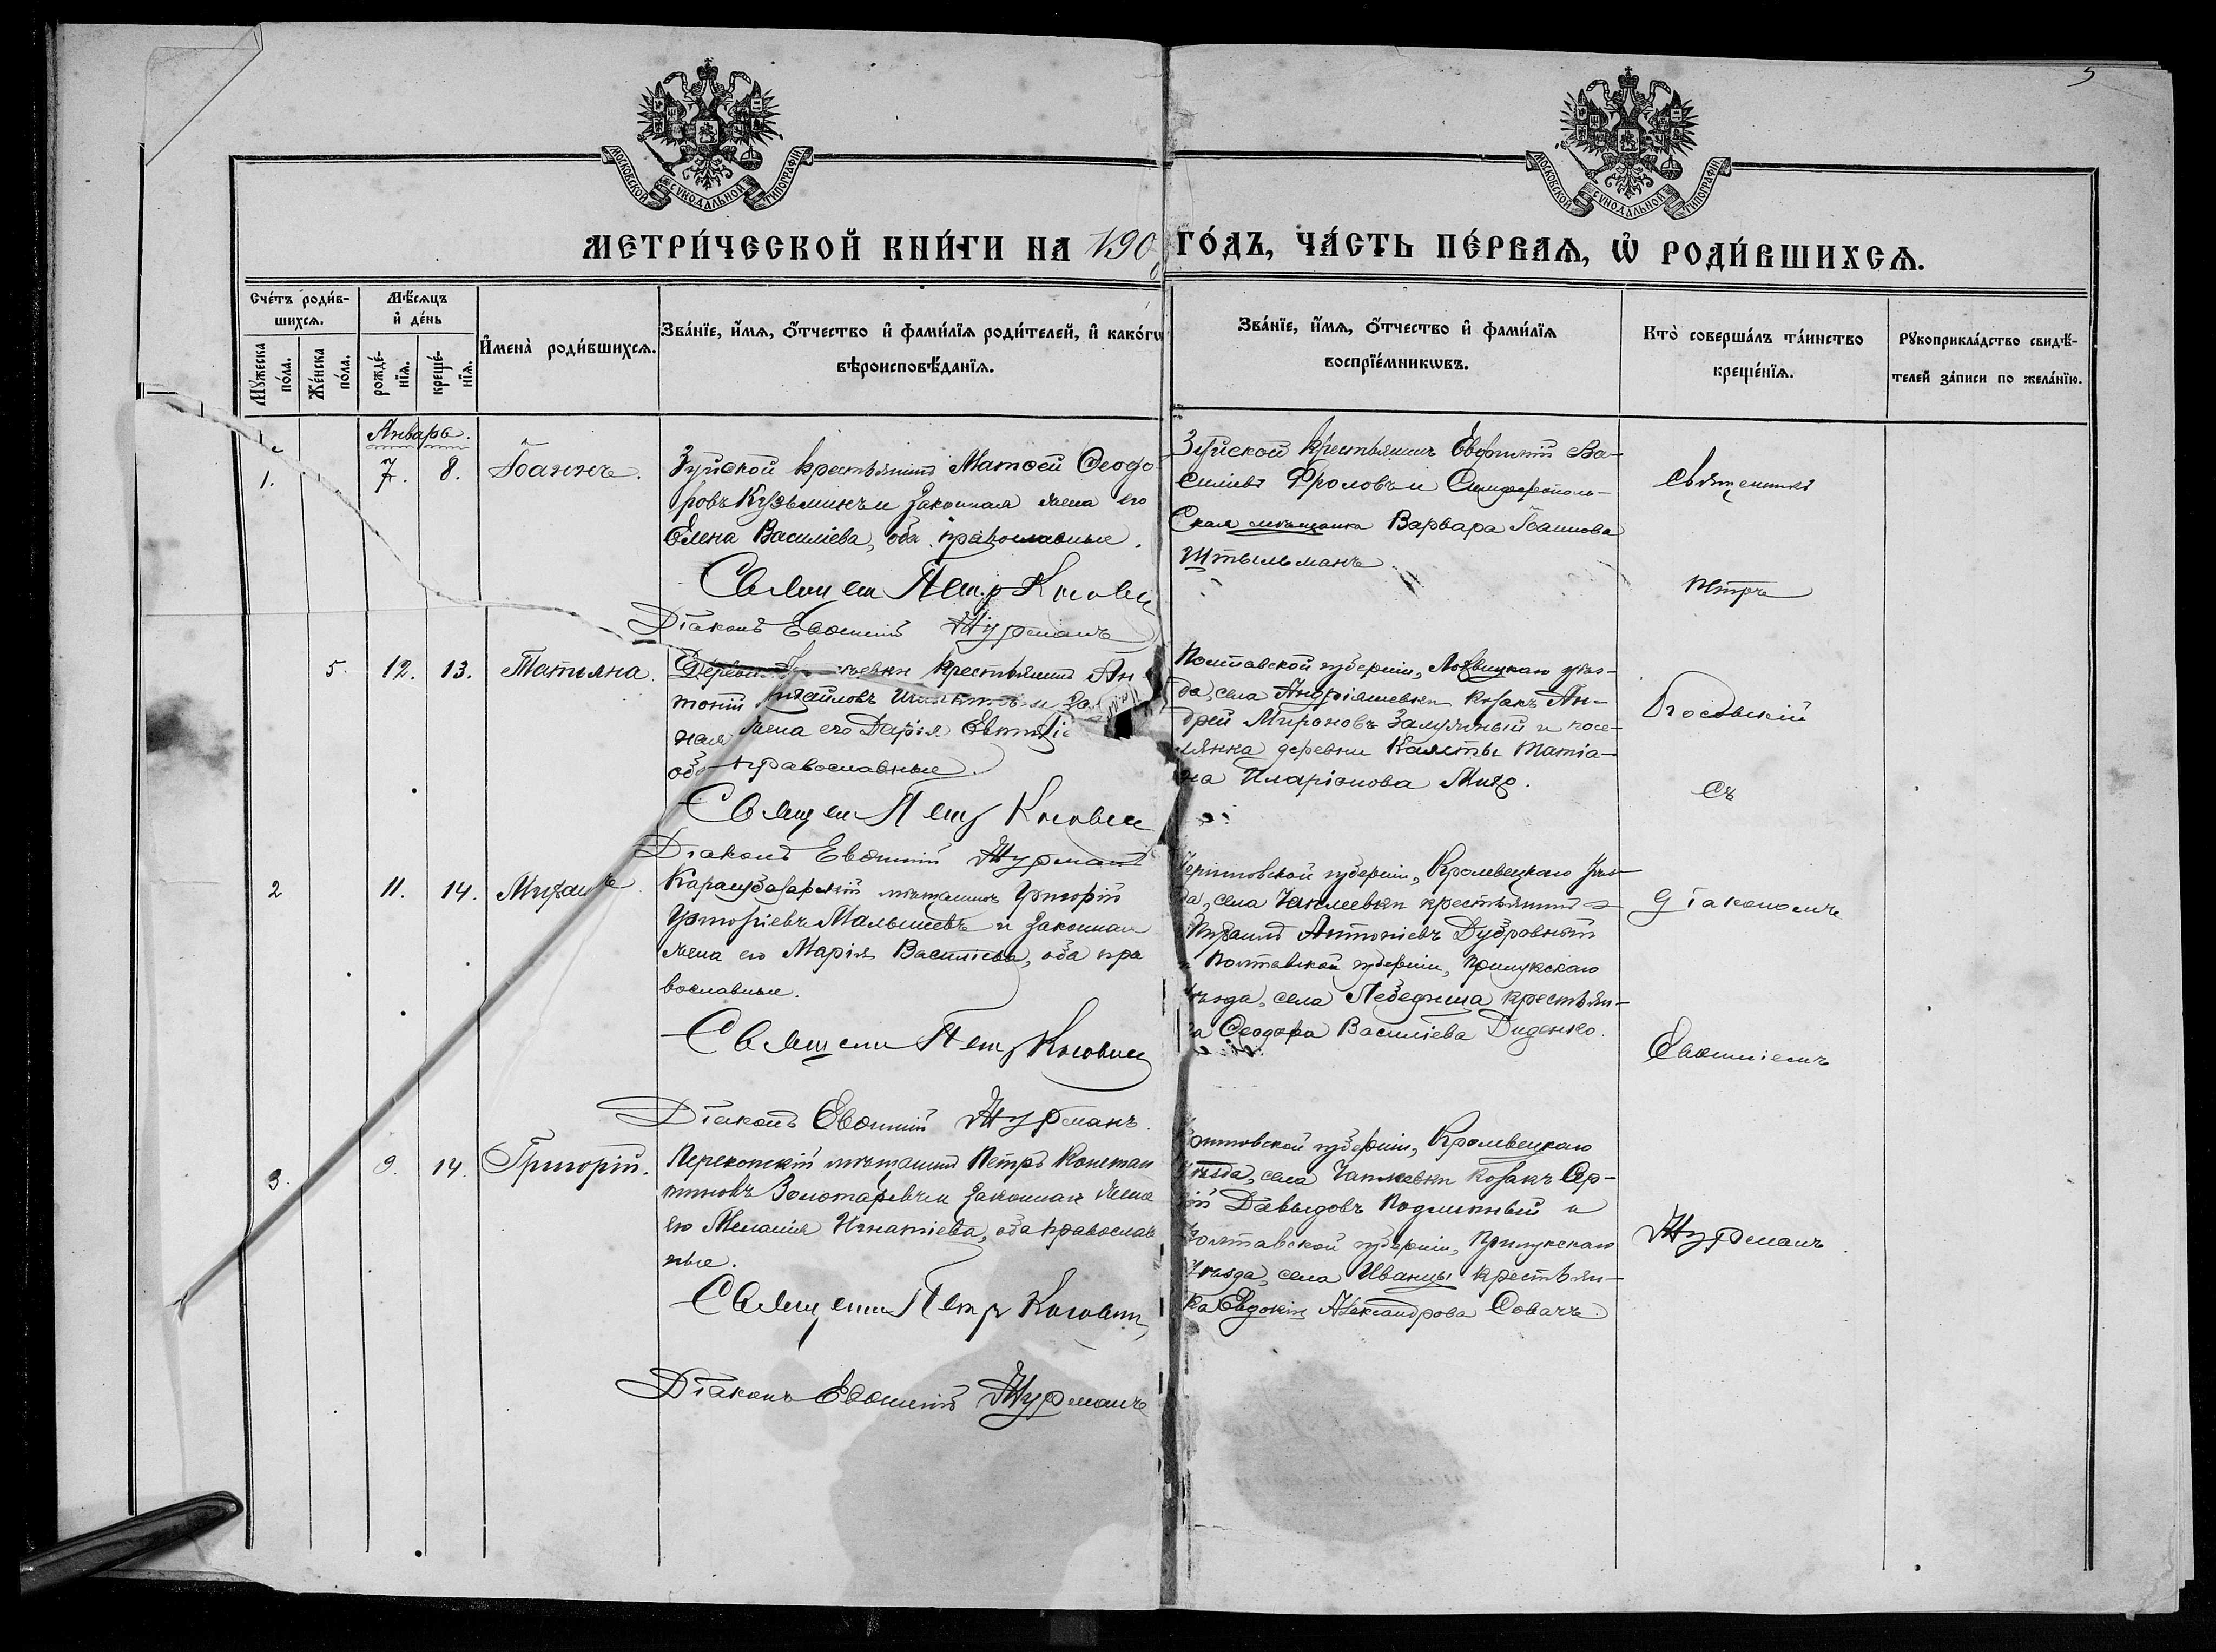 5
МОСКОВСКОЙ СѴНОДАЛЬНОЙ ТИПОГРАФІИ.
МОСКОВСКОЙ СѴНОДАЛЬНОЙ ТИПОГРАФІИ.
МЕТРИ́ЧЕСКОЙ КНИ́ГИ НА 190 ГО́ДЪ, ЧА́СТЬ ПЕ́РВАѦ, Ѡ҆ РОДИ́ВШИХСѦ.
Сче́тъ роди́в-
шихсѧ.
Мꙋ́жеска по́ла.
Же́нска по́ла.
Мѣ́сѧцъ
и҆ де́нь
рожде́-
нїѧ.
креще́-
нїѧ.
И҆мена̀ роди́вшихсѧ.
Зва́нїе, и҆́мѧ, о҆́тчество и҆ фами́лїѧ роди́телей, и҆ како́гѡ
вѣроисповѣ́данїѧ.
Зва́нїе, и҆́мѧ, о҆́тчество и҆ фами́лїѧ
воспрїе́мникѡвъ.
Кто̀ соверша́лъ та́инство
креще́нїѧ.
Рꙋкоприкла́дство свидѣ́-
телей за́писи по жела́нїю.
Январь.
1.
7.
8.
Іоаннъ.
Зуйской крестьянинъ Матѳей Ѳеодо-
ровъ Кузьминъ и законная жена его
Елена Василіева, оба православные.
Священ Петр
Діаконъ Евѳимій Журманъ
Зуйской крестьянинъ Евфимій Ва-
силіевъ Фроловъ и Симферополь-
ская мѣщанка Варвара Іоаннова
Штыльманъ
Священникъ
Петръ
5.
12.
13.
Татьяна.
крестьянинъ Ан-
тоній
жена его Дарія
православные.
Священ Петр
Діаконъ Евѳимій Журманъ
Полтавской губерніи, Лохвицкаго уѣз-
да, села Андріяшевки козакъ Ан-
дрей Мироновъ Залужный и посе-
лянка деревни Татіа-
на Иларіонова
Съ
2
11.
14.
Михаилъ.
Карасубазарскій мѣщанинъ Григорій
Григоріевъ Малышевъ и законная
жена его Марія Василіева, оба пра
вославные.
Священ Петр
Діаконъ Евѳимій Журманъ.
Черниговской губерніи, Кролевецкаго уѣз-
да, села крестьянинъ
Михаилъ Антоніевъ Дубровный
и Полтавской губерніи, Прилукскаго
уѣзда, села Лебедина крестьян-
ка Ѳеодора Василіева Диденко.
Діакономъ
Евѳиміемъ
3.
9.
14.
Григорій.
Перекопскій мѣщанинъ Петръ Констан
тиновъ Золотаревъ и законная жена
его Меланія Игнатіева, оба православ
ные.
Священ Петр
Діаконъ Евѳимій Журманъ
Черниговской губерніи, Кролевецкаго
Уѣзда, села козакъ Сер-
гій Давыдовъ и
Полтавской губерніи, Прилукскаго
Уѣзда, села Иванцы крестьян-
ка Евдокія Александрова
Журманъ.